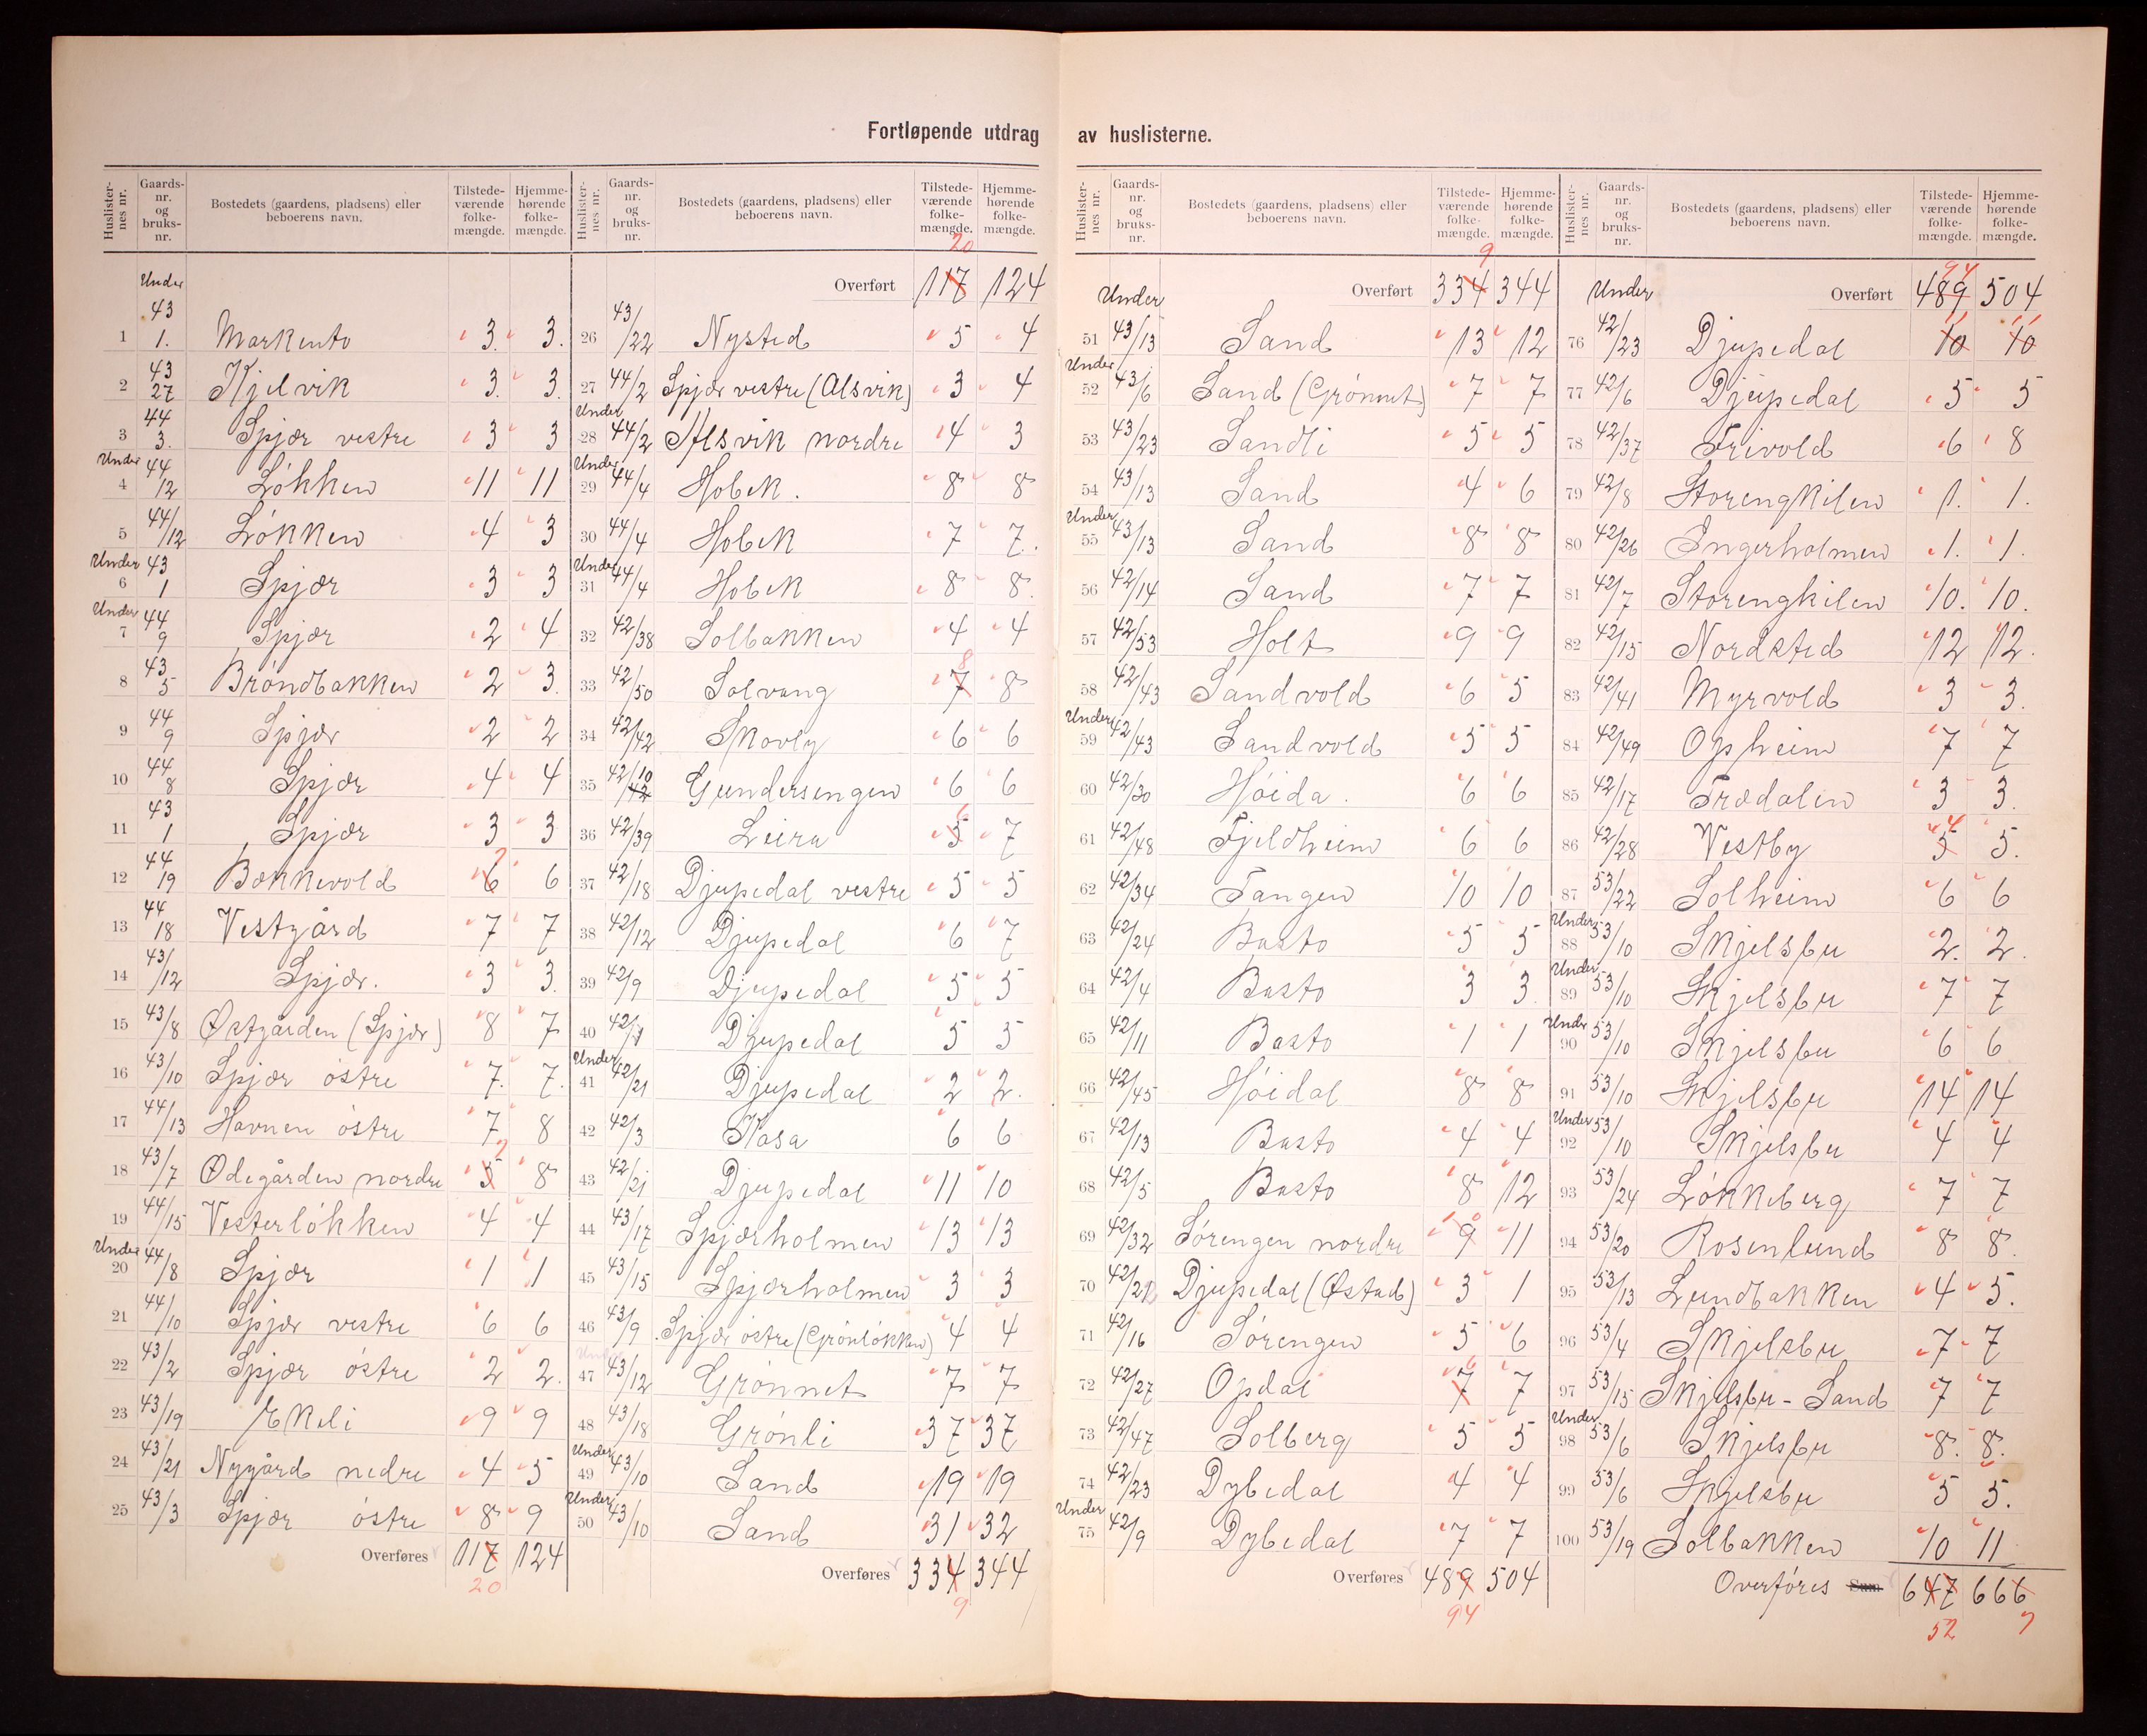 Fortløpende utdrag av huslisterne.
Huslister-nes nr. Gaards-nr. og bruks-nr. Bostedets (gaardens, pladsens) eller beboerens navn. Tilstede-værende folke-mængde. Hjemme-hørende folke-mængde.
Under
1 43 1. Markento 3. 3.
2 43 27 Kjelvik 3. 3.
3 44 3. Spjær vestre 3 3
4 Under 44 12 Løkken 11 11
5 44/12 Løkken 4 3
6 Under 43 1 Spjær 3 3
7 Under 44 9 Spjær 2 4
8 43 5 Brøndbakken 2 3.
9 44 9 Spjær 2 2
10 44 8 Spjær 4 4
11 43 1 Spjær 3 3
12 44 19 Bakkevold 6 7 6
13 44 18 Vestgård 7 7
14 43/12 Spjær. 3 3.
15 43/8 Østgården (Spjær) 8 7
16 43/10 Spjær østre 7. 7.
17 44/13 Havnen østre 7 8
18 43/7 Ødegården nordre 5 7 8
19 44/15 Vesterløkken 4 4
20 Under 44/8 Spjær 1 1
21 44/10 Spjær vestre 6 6
22 43/2 Spjær østre 2 2.
23 43/19 Ekeli 9 9
24 43/21 Nygård nedre 4 5
25 43/3 Spjær østre 8 9
Overføres 117 124
20
Huslister-nes nr. Gaards-nr. og bruks-nr. Bostedets (gaardens, pladsens) eller beboerens navn. Tilstede-værende folke-mængde. Hjemme-hørende folke-mængde.
20
Overført 117 124
26 43/22 Nysted 5 4
27 44/2 Spjær vestre (Alsvik) 3 4
28 Under 44/2 Alsvik nordre 4 3
29 Under 44/4 Hobek. 8 8
30 44/4 Hobek 7 7.
31 Under 44/4 Hobek 8 8.
32 42/38 Solbakken 4 4
33 42/50 Solvang 7 8 8
34 42/42 Skovly 6 6
35 42/10 42 Gundersengen 6 6
36 42/39 Leira 5 6 7
37 42/18 Djupedal vestre 5 5
38 42/12 Djupedal 6 7
39 42/9 Djupedal 5 5
40 42/1 Djupedal 5 5
41 Under 42/21 Djupedal 2 2.
42 42/3 Kasa 6 6
43 42/21 Djupedal 11 10
44 43/17 Spjærholmen 13 13
45 43/15 Spjærholmen 3 3
46 43/9 Spjær østre (Grønløkken) 4 4
47 Under 43/12 Grønnet 7 7
48 43/18 Grønli 37 37
49 Under 43/10 Sand 19 19
50 Under 43/10 Sand 31 32
Overføres 334 344
9
Huslister-nes nr. Gaards-nr. og bruks-nr. Bostedets (gaardens, pladsens) eller beboerens navn. Tilstede-værende folke-mængde. Hjemme-hørende folke-mængde.
9
Under Overført 334 344
51 43/13 Sand 13 12
52 Under 43/6 Sand (Grønnet) 7 7
53 43/23 Sandli 5 5
54 43/13 Sand 4 6
55 Under 43/13 Sand 8 8
56 42/14 Sand 7 7
57 42/53 Holt 9 9
58 42/43 Sandvold 6 5
59 Under 42/43 Sandvold 5 5
60 42/30 Høida. 6 6
61 42/48 Fjeldheim 6 6
62 42/34 Tangen 10 10
63 42/24 Basto 5 5
64 42/4 Basto 3 3
65 42/11 Basto 1 1
66 42/45 Høidal 8 8
67 42/13 Basto 4 4
68 42/5 Basto 8 12
69 42/32 Sørengen nordre 9 10 11
70 42/21 Djupedal (Østad) 3 1
71 42/16 Sørengen 5 6
72 42/27 Opdal 7 6 7
73 42/47 Solberg 5 5
74 42/23 Dybedal 4 4
75 Under 42/9 Dybedal 7 7
Overføres 489 504
94
Huslister-nes nr. Gaards-nr. og bruks-nr. Bostedets (gaardens, pladsens) eller beboerens navn. Tilstede-værende folke-mængde. Hjemme-hørende folke-mængde.
94
Under Overført 489 504
76 42/23 Djupedal 10 11 10 11
77 42/6 Djupedal 5 5
78 42/37 Frivold 6 8
79 42/8 Storengkilen 1. 1.
80 42/26 Ingerholmen 1. 1.
81 42/7 Storengkilen 10. 10.
82 42/15 Nordsted 12 12.
83 42/41 Myrvold 3 3.
84 42/49 Opheim 7 7
85 42/17 Trædalen 3 3.
86 42/28 Vestby 5 4 5.
87 53/22 Solheim 6 6
88 Under 53/10 Skjelsbu 2. 2.
89 Under 53/10 Skjelsbu 7 7
90 Under 53/10 Skjelsbu 6 6
91 53/10 Skjelsbu 14 14
92 Under 53/10 Skjelsbu 4 4
93 53/24 Løkkeberg 7 7
94 53/20 Rosenlund 8 8.
95 53/13 Lundbakken 4 5.
96 53/4 Skjelsbu 7 7
97 53/15 Skjelsbu - Sand 7 7
98 Under 53/6 Skjelsbu 8. 8.
99 53/6 Skjelsbu 5 5.
100 53/19 Solbakken 10 11
Overføres Sum 647 666
52 7